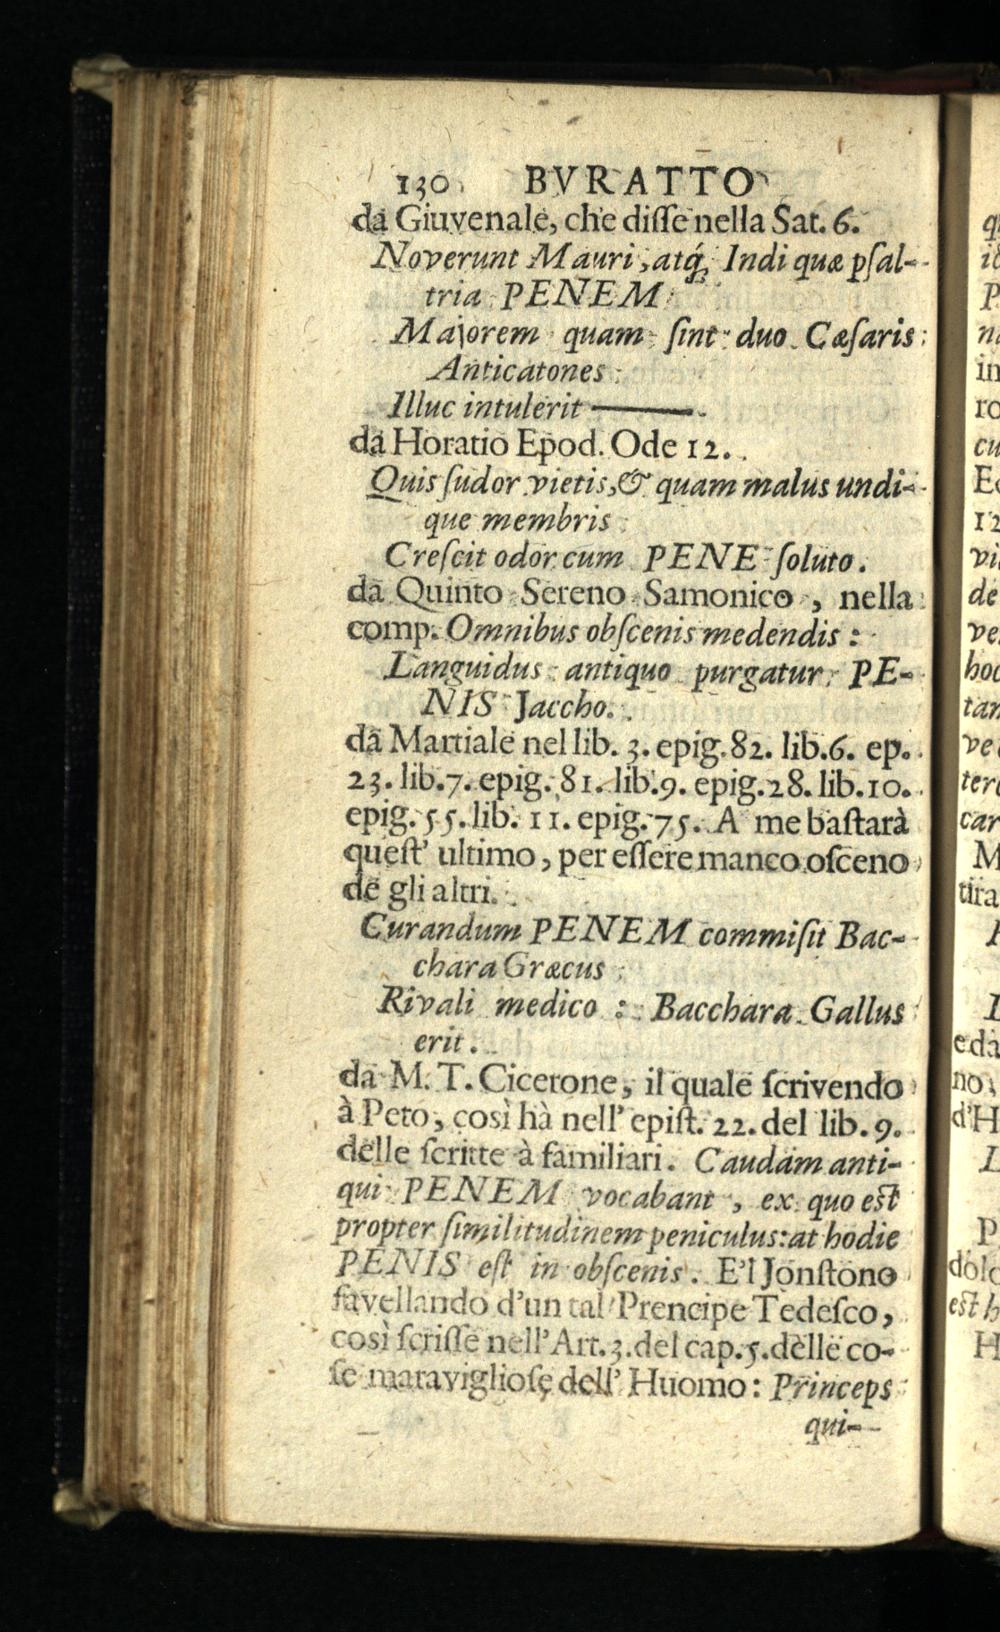 130 BVRATTO
da Giuvenale, che diſſe nella Sat. 6.
Noverunt Mauri, atq́; Indi quæ pſal-
tria PENEM
Majorem quam ſint duo Cæſaris
Anticatones
Illuc intulerit ———.
da Horatio Epod. Ode 12.
Quis ſudor vietis, & quam malus undi-
que membris
Creſcit odor cum PENE ſoluto.
da Quinto Sereno Samonico, nella
comp. Omnibus obſcenis medendis:
Languidus antiquo purgatur PE-
NIS Jaccho.
da Martiale nel lib. 3. epig. 82. lib. 6. ep.
23. lib. 7. epig. 81. lib. 9. epig. 28. lib. 10.
epig. 55. lib. 11. epig. 75. A me baſtarà
queſt' ultimo, per eſſere manco oſceno
de gli altri.
Curandum PENEM commiſit Bac-
chara Græcus
Rivali medico: Bacchara Gallus
erit.
da M. T. Cicerone, il quale ſcrivendo
à Peto, così hà nell' epiſt. 22. del lib. 9.
delle ſcritte à familiari. Caudam anti-
qui PENEM vocabant, ex quo eſt
propter ſimilitudinem peniculus: at hodie
PENIS eſt in obſcenis. E'l Jonſtono
favellando d'un tal Prencipe Tedeſco,
così ſcriſſe nell' Art. 3. del cap. 5. delle co-
ſe maraviglioſe dell' Huomo: Princeps
qui-